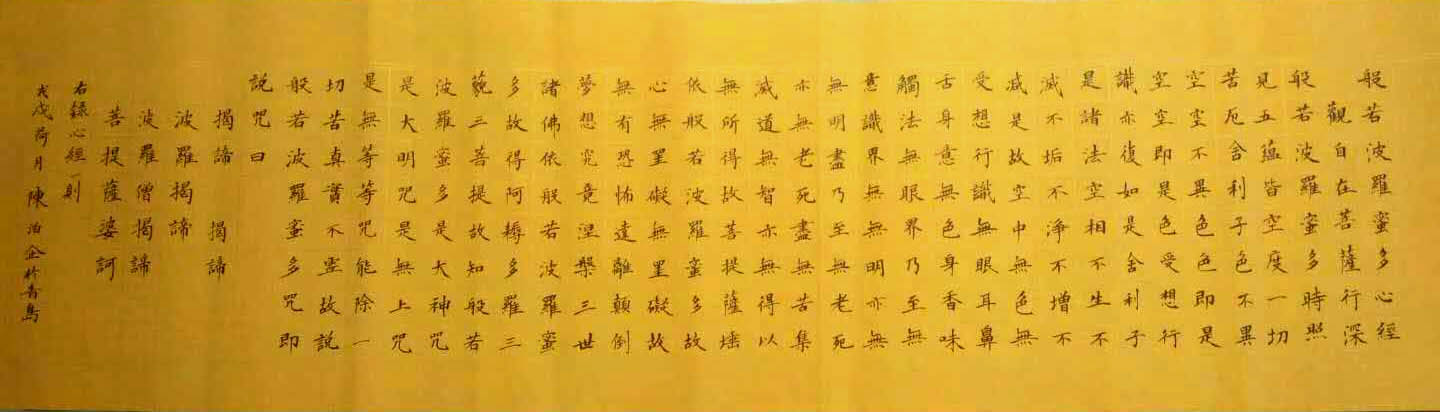 般若波羅蜜多心經
觀自在菩薩行深
般若波羅蜜多時照
見五蘊皆空度一切
苦厄舍利子色不異
空空不異色色即是
空空即是色受想行
識亦復如是舍利子
是諸法空相不生不
滅不垢不淨不增不
減是故空中無色無
受想行識無眼耳鼻
舌身意無色身香味
觸法無眼界乃至無
意識界無無明亦無
無明盡乃至無老死
亦無老死盡無苦集
滅道無智亦無得以
無所得故菩提薩埵
依般若波羅蜜多故
心無罣礙無罣礙故
無有恐怖遠離顛倒
夢想究竟涅槃三世
諸佛依般若波羅蜜
多故得阿耨多羅三
藐三菩提故知般若
波羅蜜多是大神咒
是大明咒是無上咒
是無等等咒能除一
切苦真實不虛故說
般若波羅蜜多咒即
說咒曰
揭諦 揭諦
波羅揭諦
波羅僧揭諦
菩提薩婆訶
右錄心經一則
戊戌荷月陳泊企於青島